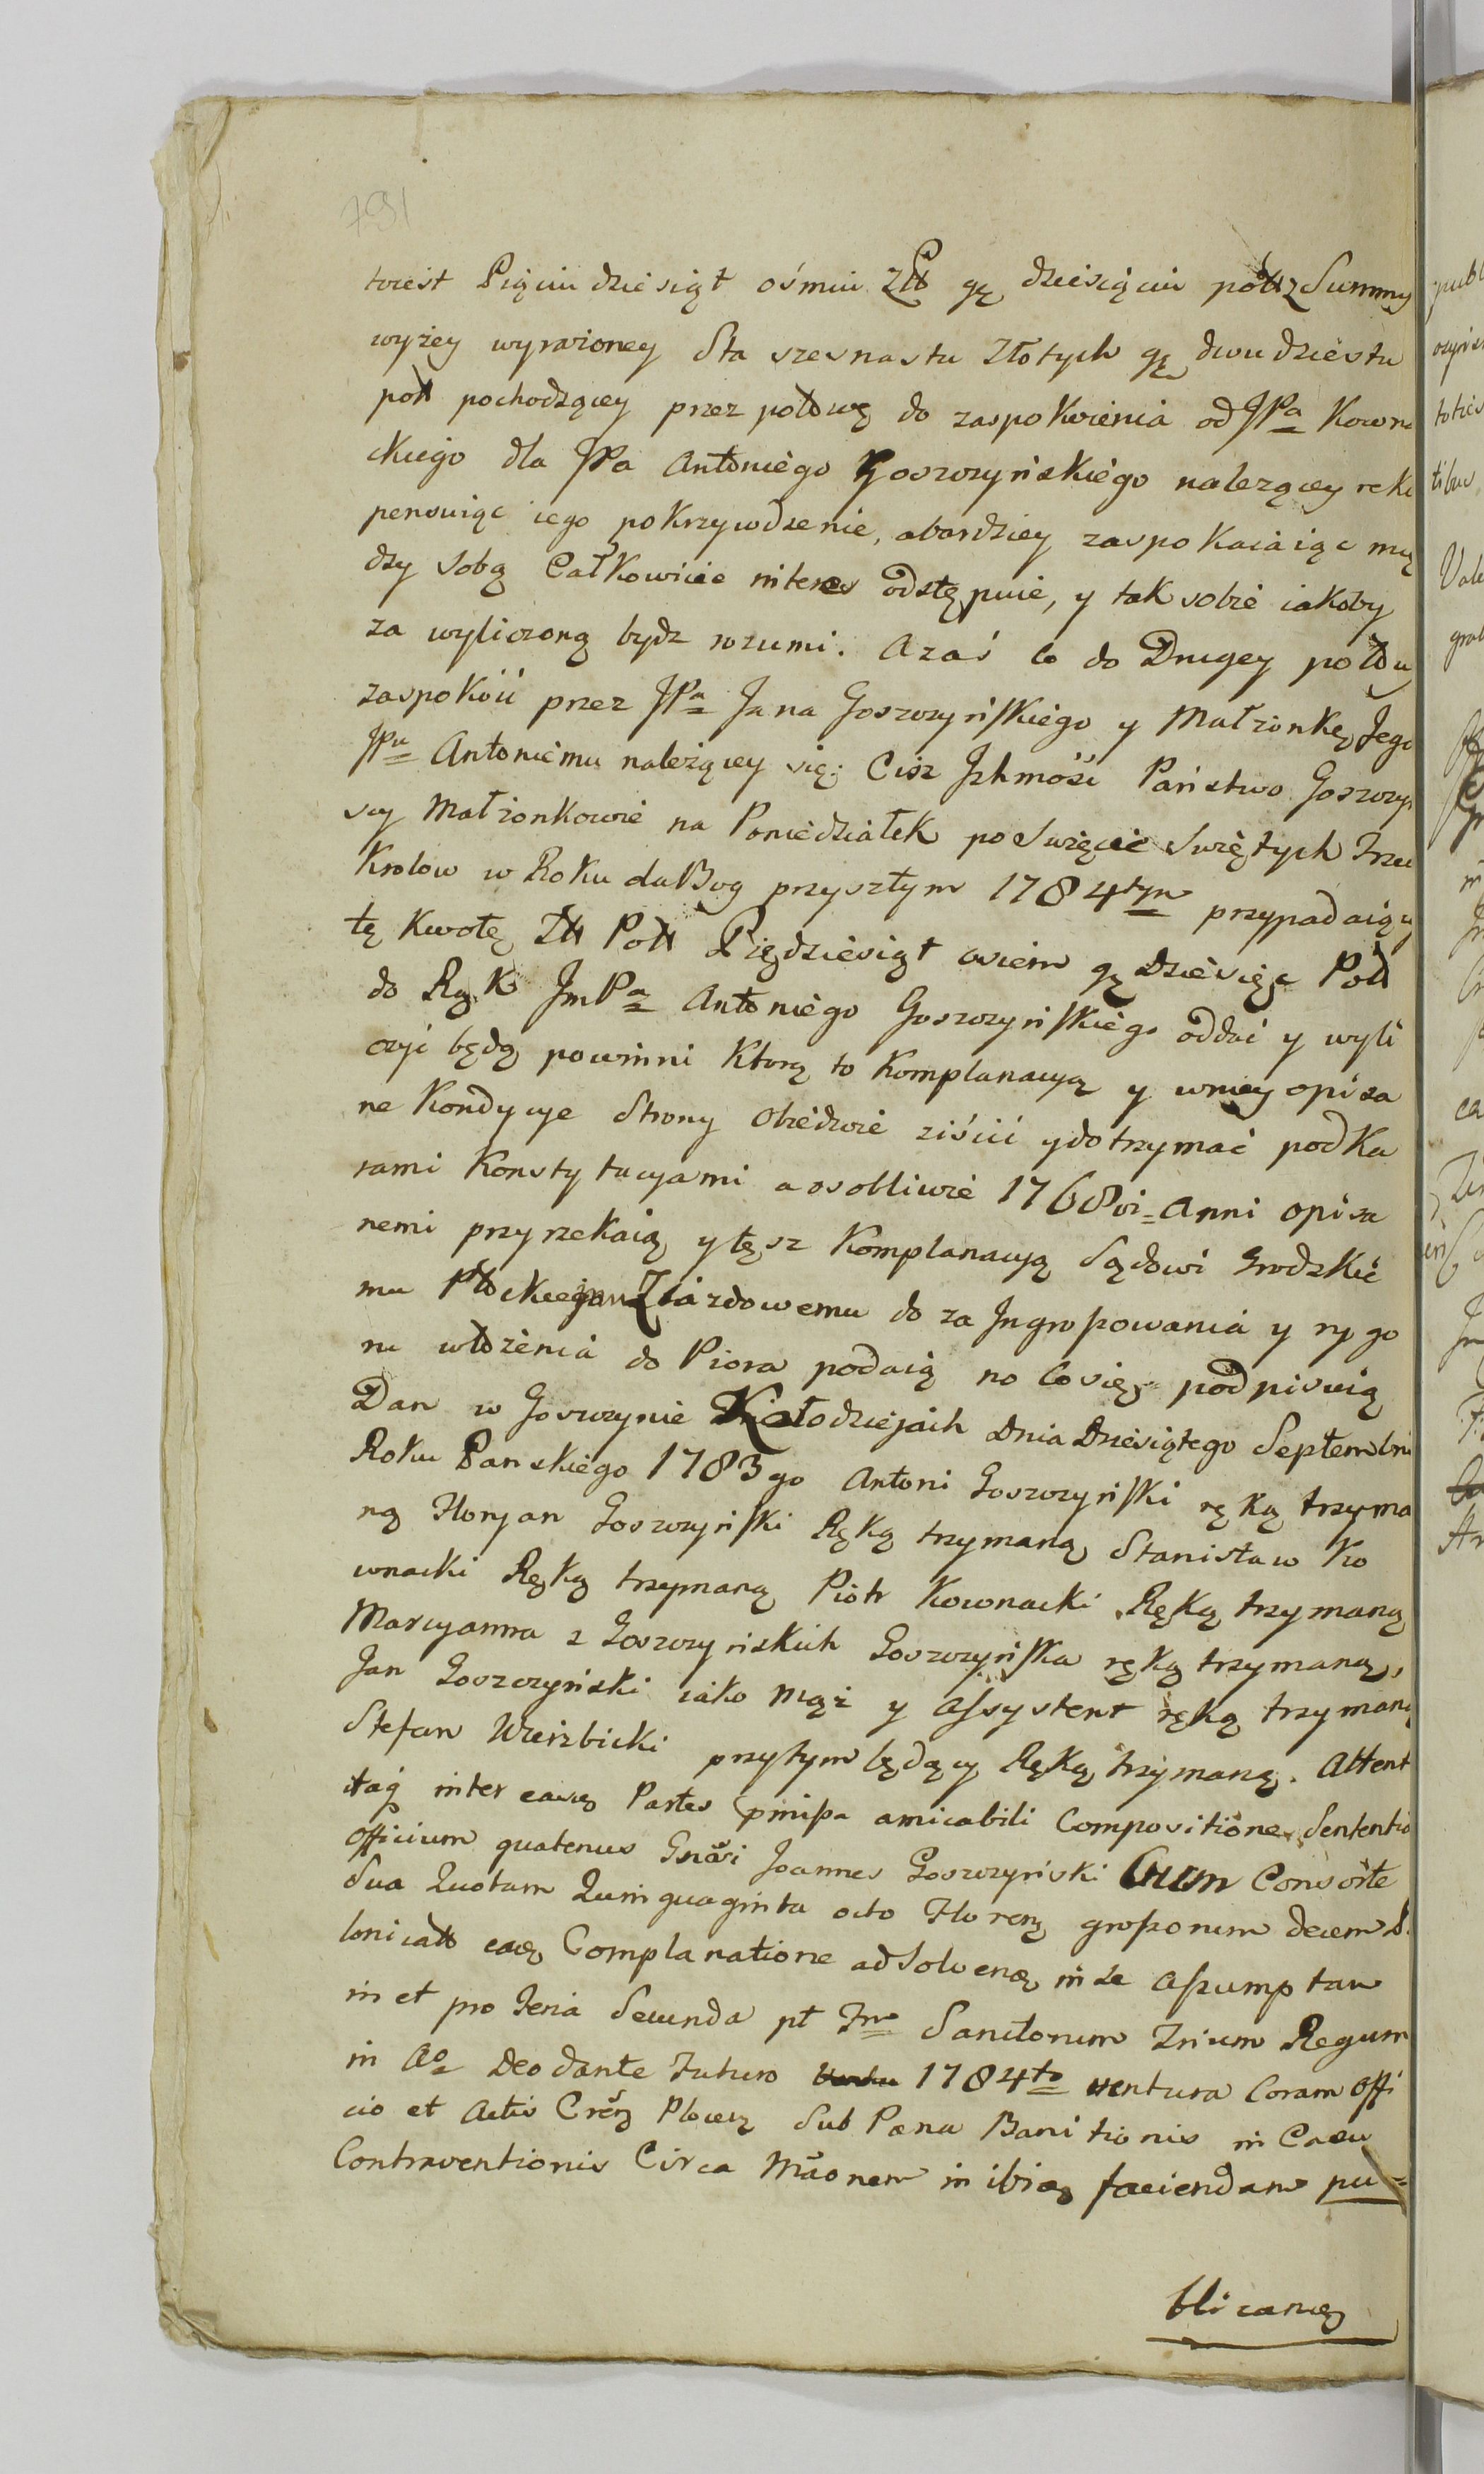 791
trzest Pięciudziesiąt ośmiu Złł gę dziesięciu poll z Summy
wyżey wyrażoney Sta szesnastu Złotych gę dwudziestu
poll pochodzącey przez połowę do zaspokoienia od JPa Kowna
ckiego dla JPa Antoniego Goszczyńskiego nalezącey reko
pensuiąc iego pokrzywdzenie, abardziey zaspokaiaiąc mię
dzy sobą Całkowicie interes odstępuie, y tak sobie iakoby
za wyliczoną bydz rozumi. Azaś co do Drugey połowy
zaspokoić przez JPa Jana Goszczyńskiego y Małżonkę Jego
JPu Antoniemu należącey się; Cisz Ichmość Państwo Goszczyń
scy Małżonkowie na Poniedziałek po Swięcie Swiętych Trzech
Krolow w Roku da Bog przyszłym 1784tym przypadaiący
tę kwotę Złł Poll Pięćdziesiąt osiem gę Dziesięć Poll
do Rąk JmPa Antoniego Goszczyńskiego oddać y wyli
czyć będą powinni Ktorą to Komplanacyą y wniey opisa
ne Kondycye Strony Obiedwie ziścić ydotrzymać pod Ka
rami Konstytucyami a osobliwie 1768vi Anni opisa
nemi przyrzekaią ytęsz Komplanacyą Sądowi Grodzkie
mu Płockiemu Ziazdowemu do za Ingrosowania y rygo
ru włożenia do Piora podaią no Cosię podpisuią
Dan w Goszczynie Kołodziejach Dnia Dziesiątego Septembris
Roku Panskiego 1783go Antoni Goszczyński ręką trzyma
ną Floryan Goszczyński Ręką trzymaną Stanisław Ko
wnacki Ręką trzymaną Piotr Kownacki Ręką trzymaną
Marcyanna z Goszczyńskich Goszczyńska ręką trzymaną,
Jan Goszczyński iako Mąż y Assystent ręką trzymaną
Stefan Wierzbicki przytym będący Ręką trzymaną. Attent
itaq inter easdę Partes pmissa amicabili Compositione Sententio
Officium quatenus Gnősi Joannes Goszczyński Cum Consorte
Sua Quotam Quinquaginta octo Florenę grossorum decem
lonicall eadę Complanatione ad Solvendę in se assumptam
in et pro Feria Secunda pt Fm Sanctorum Trium Regum
in Ao Deo dante Futuro 1784to ventura Coram Offi
cio et Actis Crę Plocen Sub Pœna Banitionis in Casu
Contraventionis Circa Mãonem in ibidę faciendam pu=
blicandę